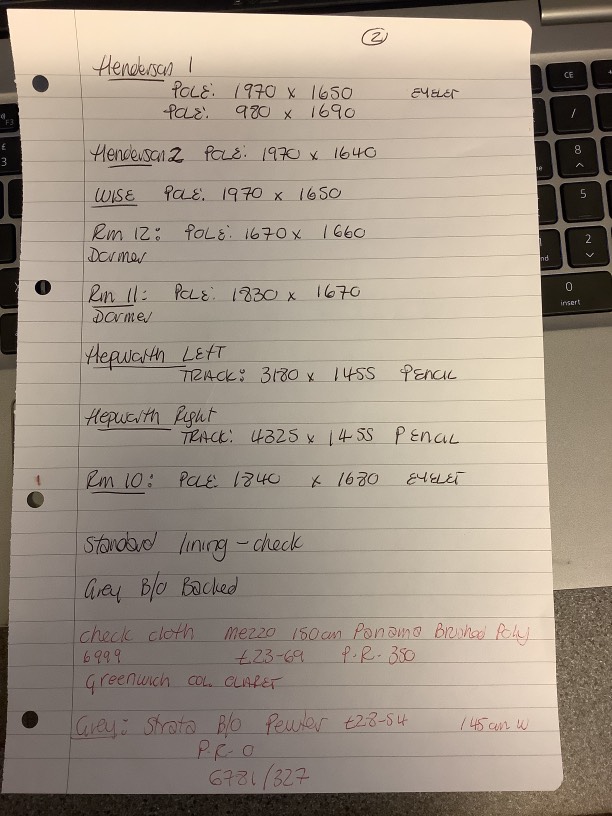 2
Henderson 1
POLE: 1970 x 1650 EYELET
POLE: 980 x 1690
Henderson 2 POLE: 1970 x 1640
WISE POLE. 1970 x 1650
Rm 12: POLE: 1670 x 1660
Dormer
Rm 11: POLE: 1830 x 1670
Dormer
Hepworth Left
TRACK: 3180 x 1455 PENCIL
Hepworth Right
TRACK: 4325 x 1455 PENCIL
Rm 10: POLE 1840 x 1680 EYELET
Standard lining - check
Grey B/o Backed
check cloth Mezzo 150cm Panama Brushed Poly
6999 £23-69 P.R. 350
Greenwich COL CLARET
Grey: Strata B/o Pewter £28-54 145cm W
P.R-0
6781/327
CE
/
8
5
2
0
insert
F3
£
3